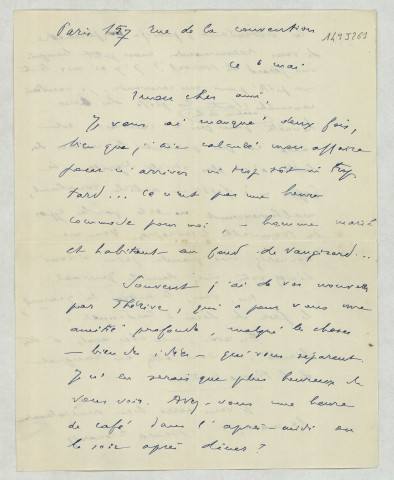 Paris 157 rue de la convention
1493261
ce 6 mai
mon cher ami,
Je vous ai manqué deux fois,
bien que j'aie calculé mon affaire
pour n'arriver ni trop tôt ni trop
tard... ce n'est pas une heure
commode pour moi, - homme marié
et habitant au fond de Vaugirard...
Souvent, j'ai de vos nouvelles
par Thérive, qui a pour vous une
amitié profonde, malgré les choses
- bien des idées - qui vous séparent.
Je n'en serais que plus heureux de
vous voir. Avez-vous une heure
de café dans l'après-midi ou
le soir après dîner ?